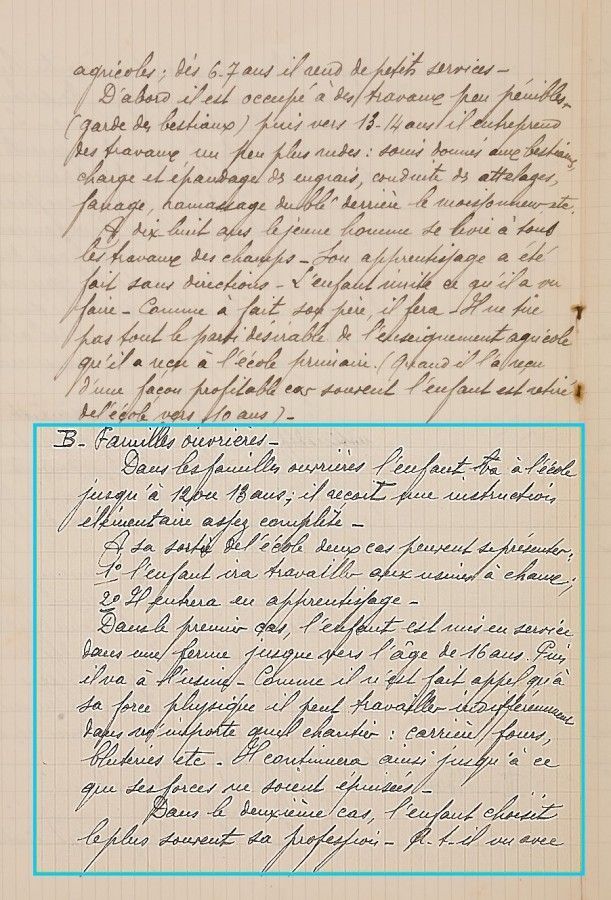 agricoles ; dès 6-7 ans il rend de petits services -
D'abord il est occupé à des travaux peu pénibles -
(garde des bestiaux) puis vers 13-14 ans il entreprend
des travaux un peu plus rudes : soins donnés aux bestiaux,
charge et épandage des engrais, conduite des attelages,
fanage, ramassage du blé derrière le moissonneur etc.
A dix huit ans le jeune homme se livre à tous
les travaux des champs - Son apprentissage a été
fait sans directions - L'enfant imite ce qu'il a vu
faire - Comme a fait son père, il fera - Il ne tire
pas tout le parti désirable de l'enseignement agricole
qu'il a reçu à l'école primaire. (Quand il l'a reçu
d'une façon profitable car souvent l'enfant est retiré
de l'école vers 10 ans) -
B - Familles ouvrières -
Dans les familles ouvrières l'enfant va à l'école
jusqu'à 12 ou 13 ans ; il reçoit une instruction
élémentaire assez complète -
A sa sortie de l'école deux cas peuvent se présenter :
1º l'enfant ira travailler aux usines à chaux ;
2º Il entrera en apprentissage -
Dans le premier cas, l'enfant est mis en service
dans une ferme jusque vers l'âge de 16 ans. Puis
il va à l'usine - Comme il n'est fait appel qu'à
sa force physique il peut travailler indifféremment
dans n'importe quel chantier : carrière, fours,
bluteries etc - Il continuera ainsi jusqu'à ce
que ses forces ne soient épuisées -
Dans le deuxième cas, l'enfant choisit
le plus souvent sa profession - A-t-il vu avec